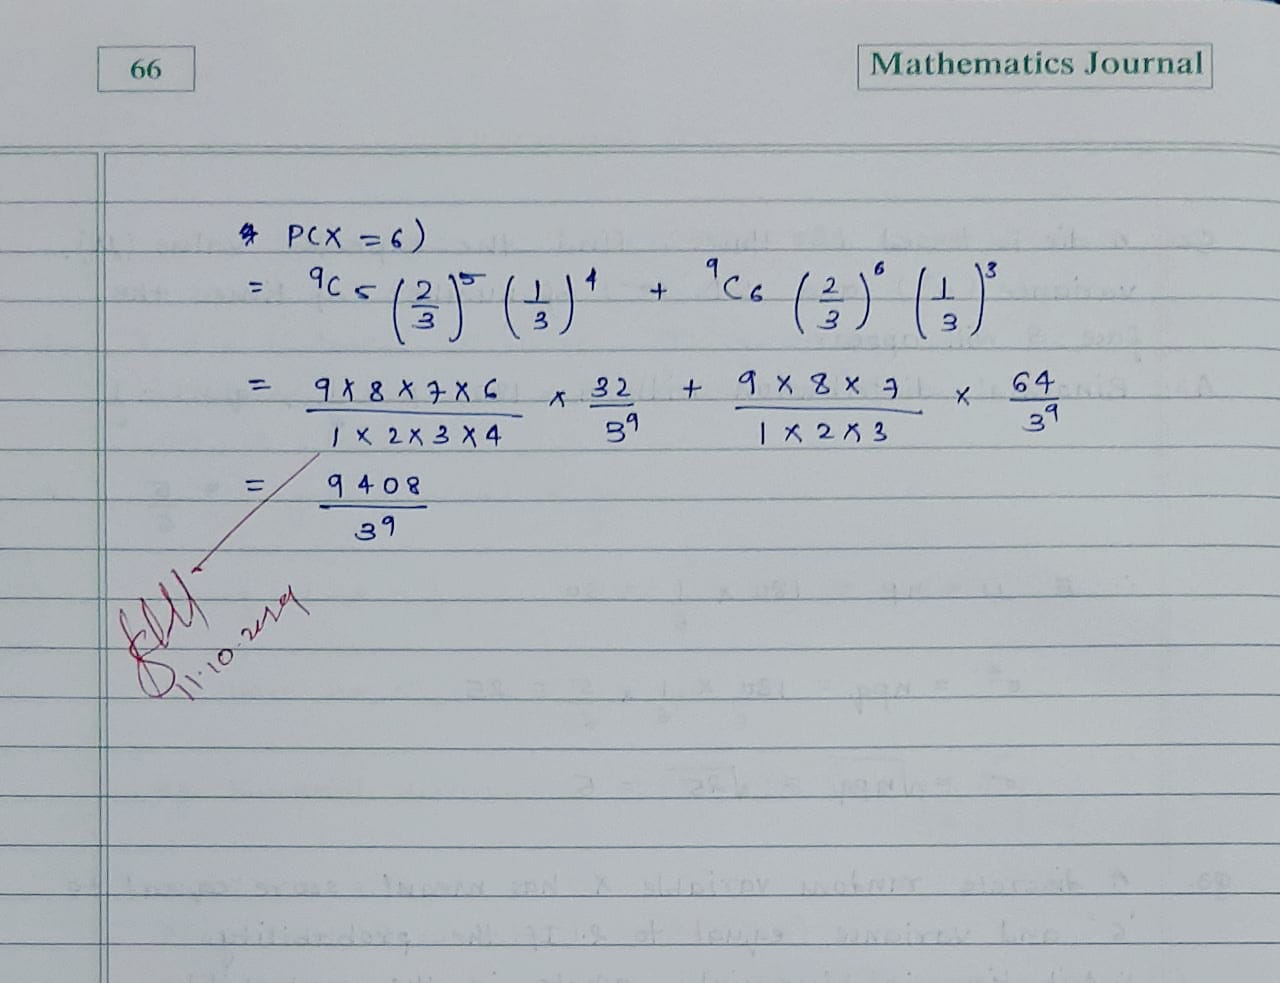 66
Mathematics Journal
P(X = 6)
= ⁹C₅ (2/3)⁵ (1/3)⁴ + ⁹C₆ (2/3)⁶ (1/3)³
= 9 × 8 × 7 × 6 / 1 × 2 × 3 × 4 × 32 / 3⁹ + 9 × 8 × 7 / 1 × 2 × 3 × 64 / 3⁹
= 9408 / 3⁹
11.10.2019